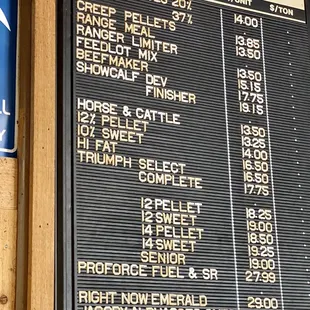 ES 20%
37%
14.00
CREEP PELLETS 13.85
RANGE MEAL 13.50
RANGER LIMITER
FEEDLOT MIX 13.50
BEEFMAKER 15.15
SHOWCALF DEV 17.75
FINISHER 19.15
HORSE & CATTLE
12% PELLET 13.50
10% SWEET 13.25
HI FAT 14.00
TRIUMPH SELECT 16.50
COMPLETE 16.50
17.75
12 PELLET 18.25
12 SWEET 19.00
14 PELLET 18.50
14 SWEET 19.25
SENIOR 19.00
PROFORCE FUEL & SR 27.99
RIGHT NOW EMERALD 29.00